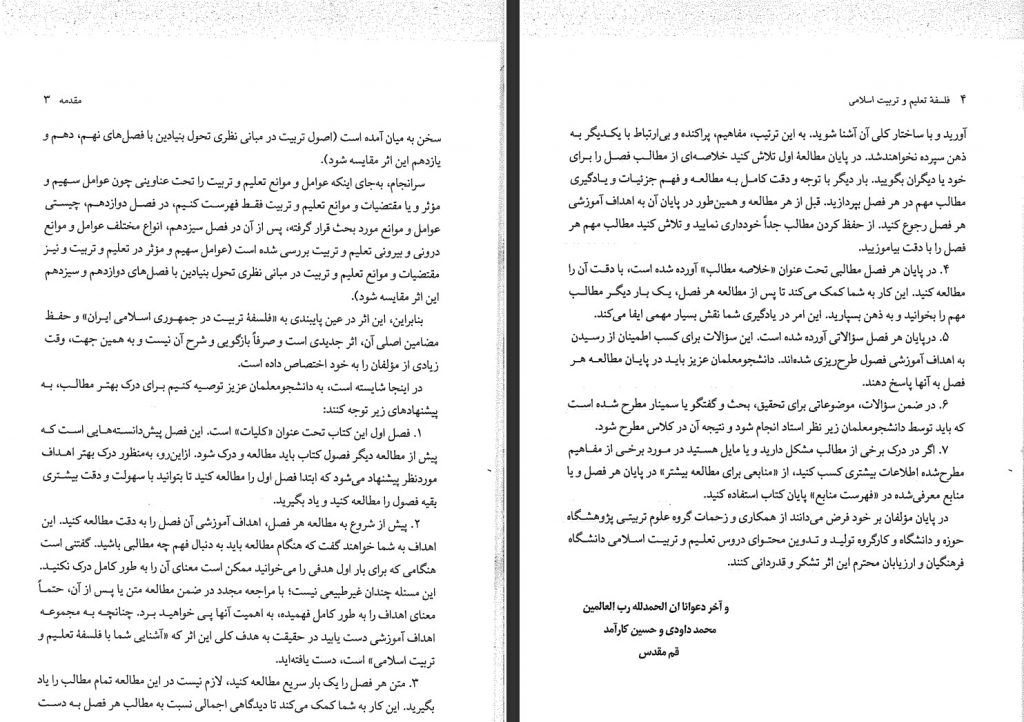 مقدمه ۳
سخن به میان آمده است (اصول تربیت در مبانی نظری تحول بنیادین با فصل‌های نهم، دهم و
یازدهم این اثر مقایسه شود).
سرانجام، به‌جای اینکه عوامل و موانع تعلیم و تربیت را تحت عناوینی چون عوامل سهیم و
مؤثر و یا مقتضیات و موانع تعلیم و تربیت فقط فهرست کنیم، در فصل دوازدهم، چیستی
عوامل و موانع مورد بحث قرار گرفته، پس از آن در فصل سیزدهم، انواع مختلف عوامل و موانع
درونی و بیرونی تعلیم و تربیت بررسی شده است (عوامل سهیم و مؤثر در تعلیم و تربیت و نیز
مقتضیات و موانع تعلیم و تربیت در مبانی نظری تحول بنیادین با فصل‌های دوازدهم و سیزدهم
این اثر مقایسه شود).
بنابراین، این اثر در عین پایبندی به «فلسفهٔ تربیت در جمهوری اسلامی ایران» و حفظ
مضامین اصلی آن، اثر جدیدی است و صرفاً بازگویی و شرح آن نیست و به همین جهت، وقت
زیادی از مؤلفان را به خود اختصاص داده است.
در اینجا شایسته است، به دانشجومعلمان عزیز توصیه کنیم برای درک بهتر مطالب، به
پیشنهادهای زیر توجه کنند:
۱. فصل اول این کتاب تحت عنوان «کلیات» است. این فصل پیش‌دانسته‌هایی است که
پیش از مطالعه دیگر فصول کتاب باید مطالعه و درک شود. ازاین‌رو، به‌منظور درک بهتر اهداف
موردنظر پیشنهاد می‌شود که ابتدا فصل اول را مطالعه کنید تا بتوانید با سهولت و دقت بیشتری
بقیه فصول را مطالعه کنید و یاد بگیرید.
۲. پیش از شروع به مطالعه هر فصل، اهداف آموزشی آن فصل را به دقت مطالعه کنید. این
اهداف به شما خواهند گفت که هنگام مطالعه باید به دنبال فهم چه مطالبی باشید. گفتنی است
هنگامی که برای بار اول هدفی را می‌خوانید ممکن است معنای آن را به طور کامل درک نکنید.
این مسئله چندان غیرطبیعی نیست؛ با مراجعه مجدد در ضمن مطالعه متن یا پس از آن، حتماً
معنای اهداف را به طور کامل فهمیده، به اهمیت آنها پی خواهید برد. چنانچه به مجموعه
اهداف آموزشی دست یابید در حقیقت به هدف کلی این اثر که «آشنایی شما با فلسفهٔ تعلیم و
تربیت اسلامی» است، دست یافته‌اید.
۳. متن هر فصل را یک بار سریع مطالعه کنید، لازم نیست در این مطالعه تمام مطالب را یاد
بگیرید. این کار به شما کمک می‌کند تا دیدگاهی اجمالی نسبت به مطالب هر فصل به دست
۴ فلسفهٔ تعلیم و تربیت اسلامی
آورید و با ساختار کلی آن آشنا شوید. به این ترتیب، مفاهیم، پراکنده و بی‌ارتباط با یکدیگر به
ذهن سپرده نخواهندشد. در پایان مطالعهٔ اول تلاش کنید خلاصه‌ای از مطالب فصل را برای
خود یا دیگران بگویید. بار دیگر با توجه و دقت کامل به مطالعه و فهم جزئیات و یادگیری
مطالب مهم در هر فصل بپردازید. قبل از هر مطالعه و همین‌طور در پایان آن به اهداف آموزشی
هر فصل رجوع کنید. از حفظ کردن مطالب جداً خودداری نمایید و تلاش کنید مطالب مهم هر
فصل را با دقت بیاموزیید.
۴. در پایان هر فصل مطالبی تحت عنوان «خلاصه مطالب» آورده شده است، با دقت آن را
مطالعه کنید. این کار به شما کمک می‌کند تا پس از مطالعه هر فصل، یک بار دیگر مطالب
مهم را بخوانید و به ذهن بسپارید. این امر در یادگیری شما نقش بسیار مهمی ایفا می‌کند.
۵. درپایان هر فصل سؤالاتی آورده شده است. این سؤالات برای کسب اطمینان از رسیدن
به اهداف آموزشی فصول طرح‌ریزی شده‌اند. دانشجومعلمان عزیز باید در پایان مطالعه هر
فصل به آنها پاسخ دهند.
۶. در ضمن سؤالات، موضوعاتی برای تحقیق، بحث و گفتگو یا سمینار مطرح شده است
که باید توسط دانشجومعلمان زیر نظر استاد انجام شود و نتیجه آن در کلاس مطرح شود.
۷. اگر در درک برخی از مطالب مشکل دارید و یا مایل هستید در مورد برخی از مفاهیم
مطرح‌شده اطلاعات بیشتری کسب کنید، از «منابعی برای مطالعه بیشتر» در پایان هر فصل و یا
منابع معرفی‌شده در «فهرست منابع» پایان کتاب استفاده کنید.
در پایان مؤلفان بر خود فرض می‌دانند از همکاری و زحمات گروه علوم تربیتی پژوهشگاه
حوزه و دانشگاه و کارگروه تولید و تدوین محتوای دروس تعلیم و تربیت اسلامی دانشگاه
فرهنگیان و ارزیابان محترم این اثر تشکر و قدردانی کنند.
و آخر دعوانا ان الحمدلله رب العالمین
محمد داودی و حسین کارآمد
قم مقدس